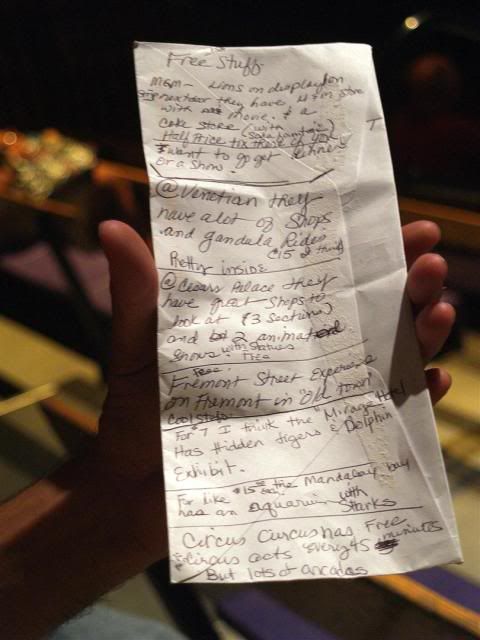 Free Stuff
MGM - Lions on display ten
next door they have M+M store
with more. & a
coke store (with soda fountain)
Half Price tix those of you
want to go get
or a show.
@ Venetian they
have a lot of Shops
and gandala Rides
$15 I think
Pretty inside
@ Cesars Palace they
have great Shops to
look at (3 Sections)
and 2 animated
Shows with Statues
Free
Free
Fremont Street Experience
on Fremont in "old town"
Cool Stuff
For $7 I think the "Mirage" Hotel
Has Hidden tigers & Dolphin
Exhibit.
For like $15 the Mandalay bay
has an aquarium with
Sharks
Circus Circus has Free
Circus acts every 45 minutes
But lots of arcades